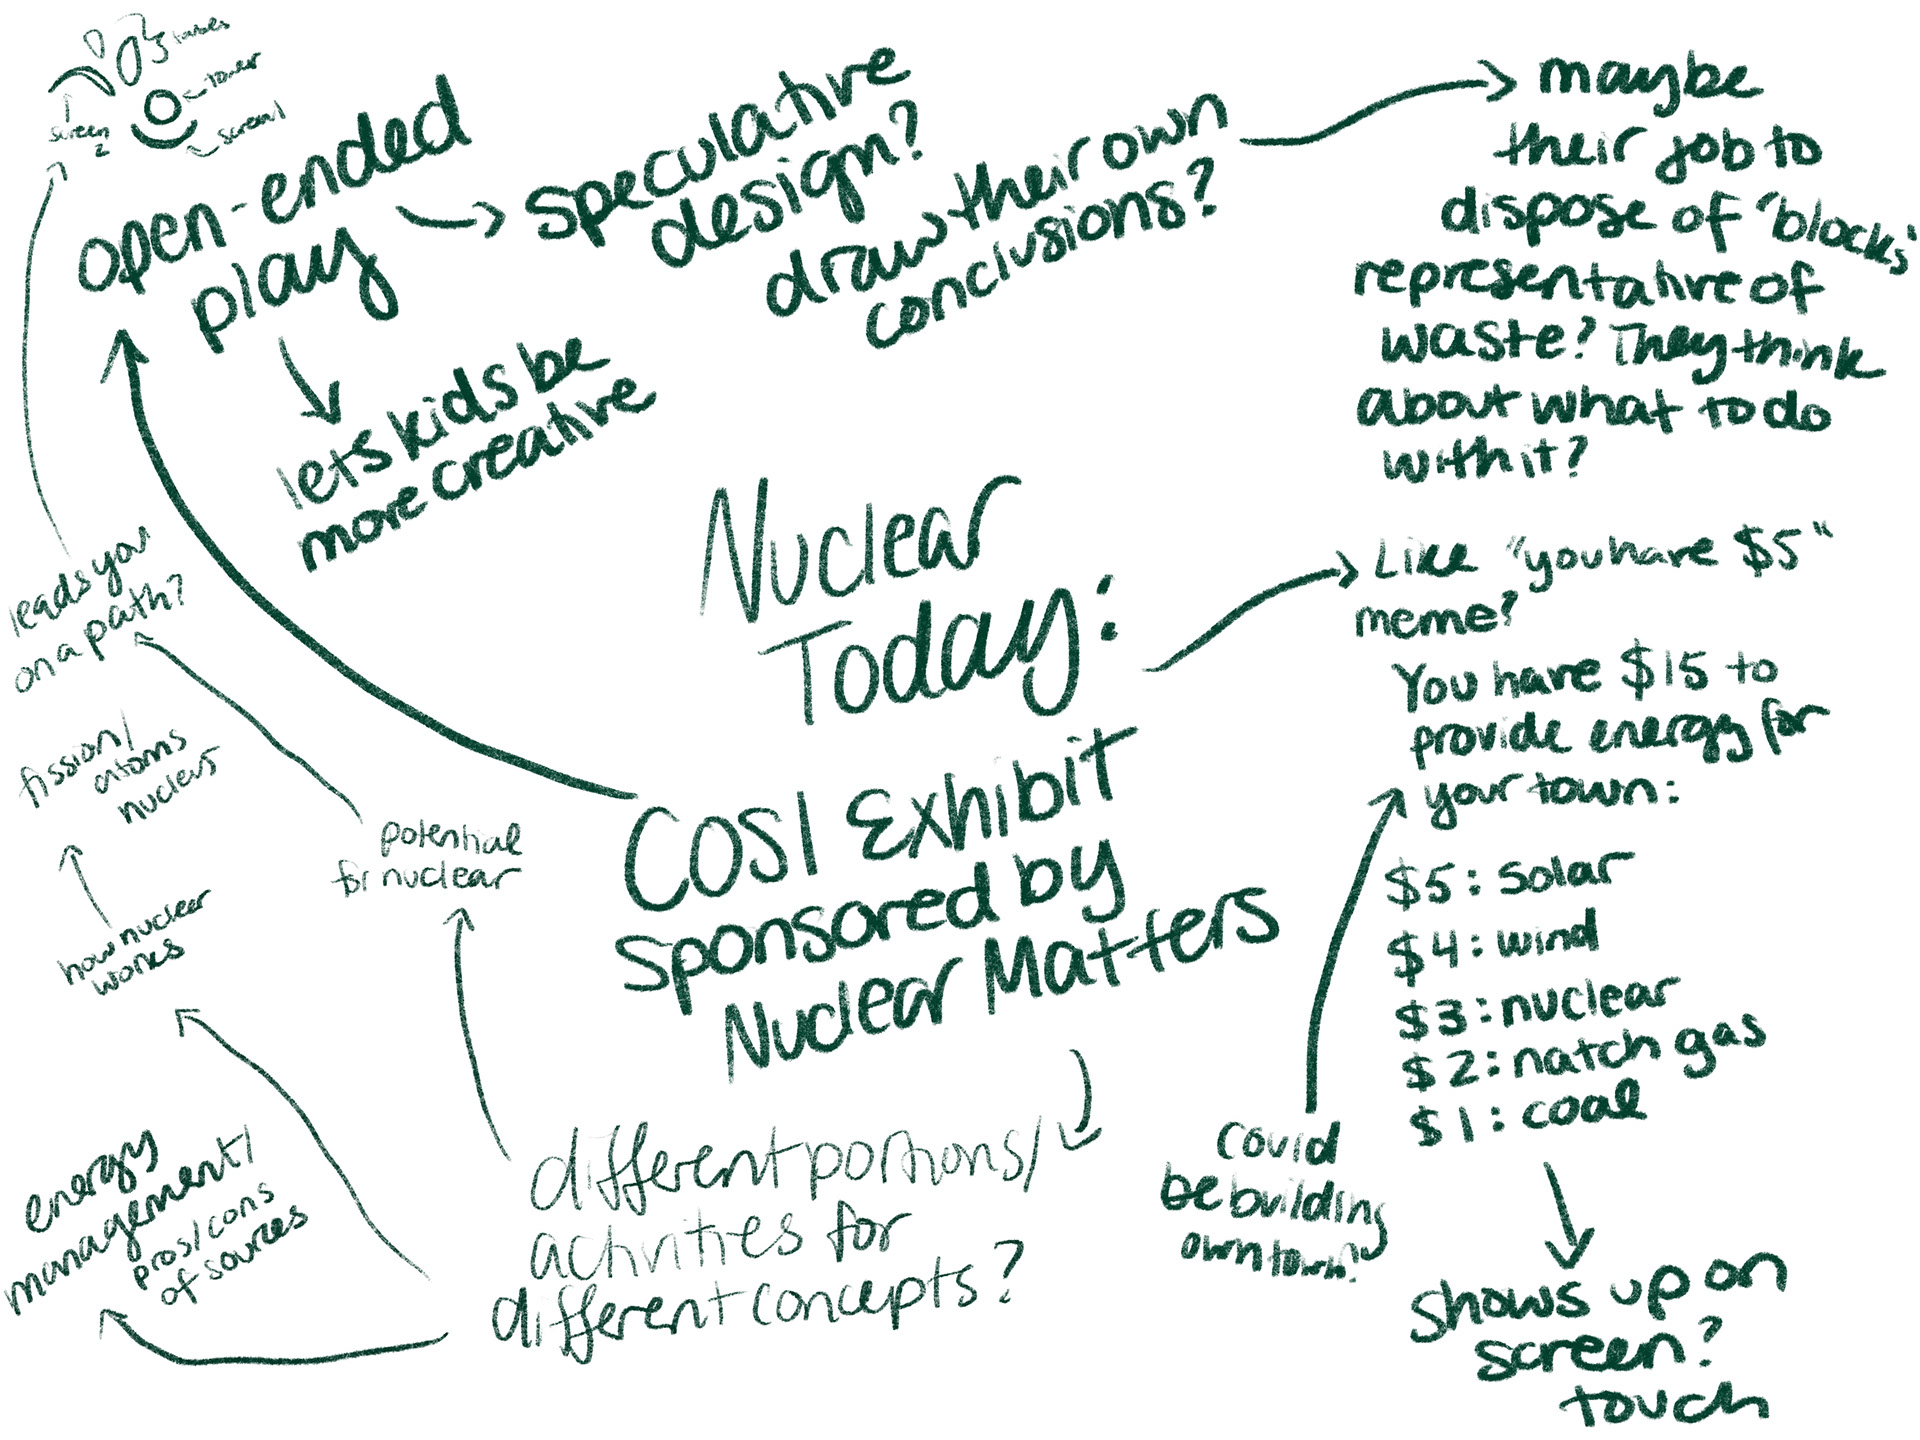 tables
tower
screen 1
screen
2
open-ended
play
speculative
design?
draw their own
conclusions?
maybe
their job to
dispose of "blocks"
representative of
waste? They think
about what to do
with it?
lets kids be
more creative
Nuclear
Today:
COSI Exhibit
sponsored by
Nuclear Matters
Like "you have $5"
meme?
You have $15 to
provide energy for
your town:
$5: solar
$4: wind
$3: nuclear
$2: natch gas
$1: coal
shows up on
screen?
touch
could
be building
own town?
different portions/
activities for
different concepts?
potential
for nuclear
leads you
on a path?
fission/
atoms
nucleus
how nuclear
works
energy
management/
pros/cons
of sources